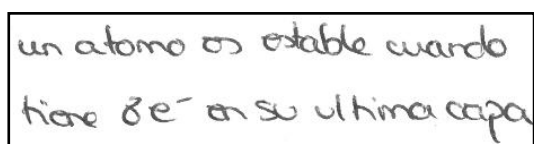 un atomo es estable cuando
tiene 8e⁻ en su ultima capa